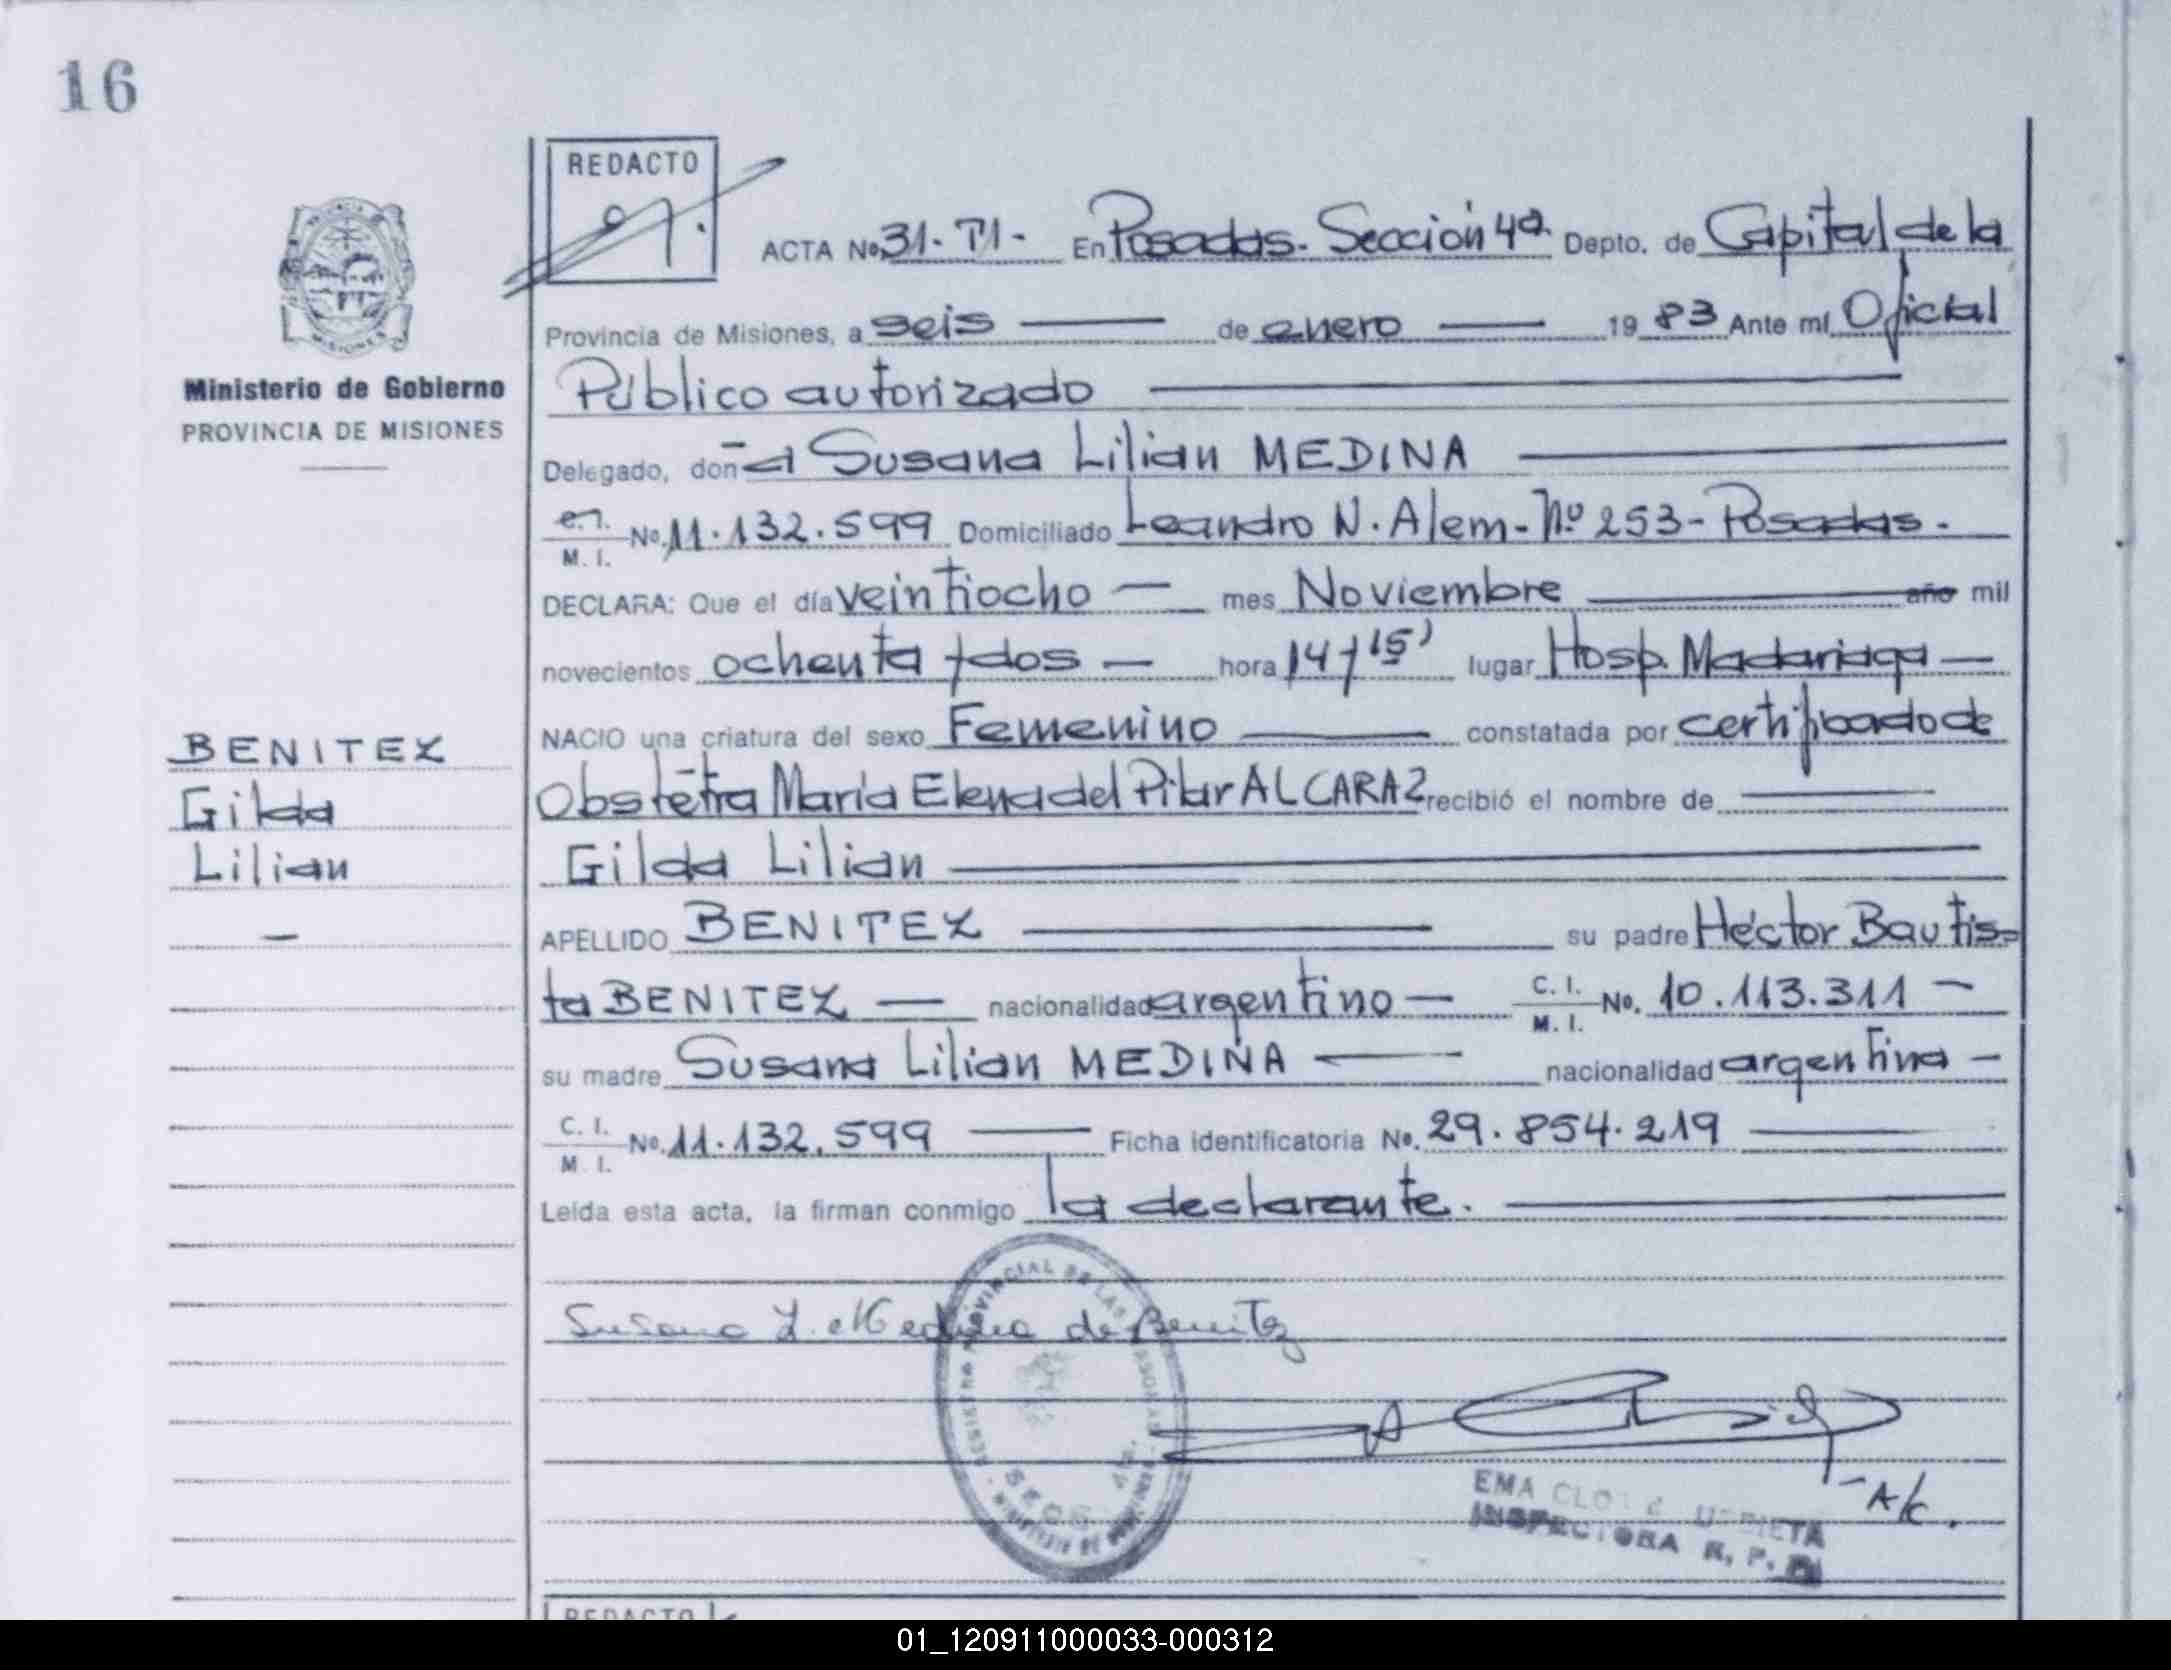 16
REDACTO
ACTA No. 31- T1- En Posadas. Sección 4ª. Depto. de Capital de la
Provincia de Misiones, a seis de enero 1983 Ante mí Oficial
Público autorizado
Ministerio de Gobierno
PROVINCIA DE MISIONES
Delegado, don-a Susana Lilian MEDINA
C. I. M. I. No. 11.132.599 Domiciliado Leandro N. Alem - Nº 253 - Posadas.
DECLARA: Que el día veintiocho mes Noviembre año mil
novecientos ochenta y dos hora 14 y 15' lugar Hosp. Madariaga
NACIO una criatura del sexo Femenino constatada por certificado de
Obstétra María Elena del Pilar ALCARAZ recibió el nombre de
Gilda Lilian
BENITEZ
Gilda
Lilian
APELLIDO BENITEZ su padre Héctor Bautis-
ta BENITEZ nacionalidad argentino C. I. M. I. No. 10.113.311
su madre Susana Lilian MEDINA nacionalidad argentina
C. I. M. I. No. 11.132.599 Ficha identificatoria No. 29.854.219
Leída esta acta, la firman conmigo la declarante.
Susana L. Medina de Benitez
A/c.
EMA
INSPECTORA R. P.
REDACTO
01_120911000033-000312